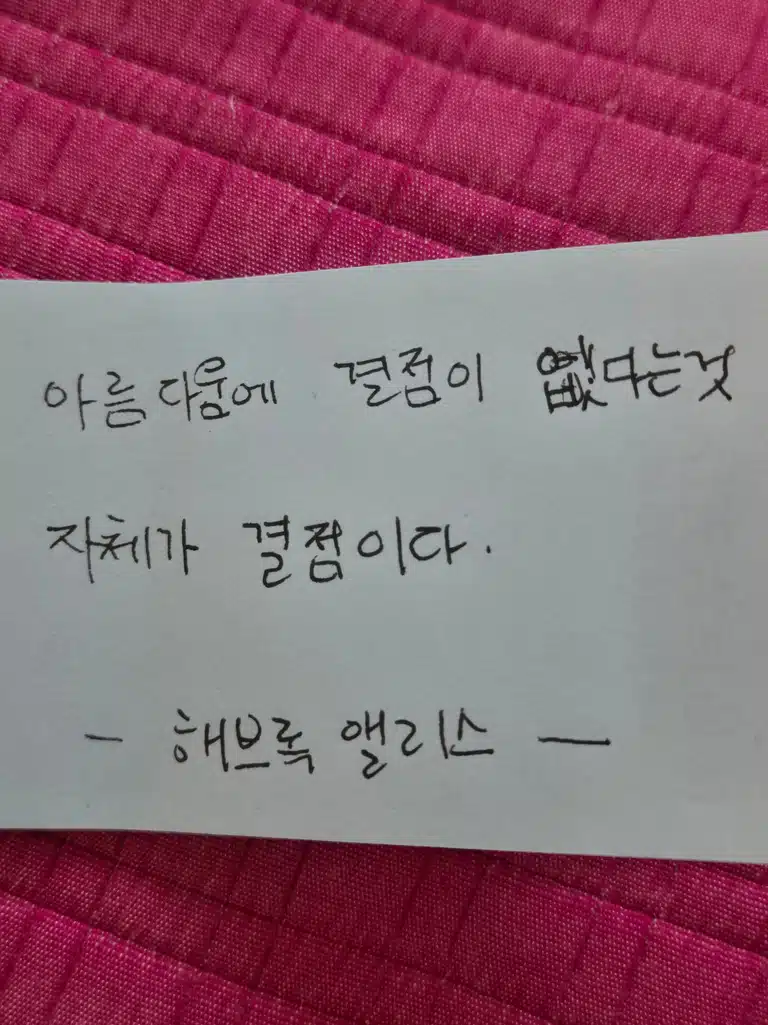 아름다움에 결점이 없다는것
자체가 결점이다.
- 해브록 앨리스 —